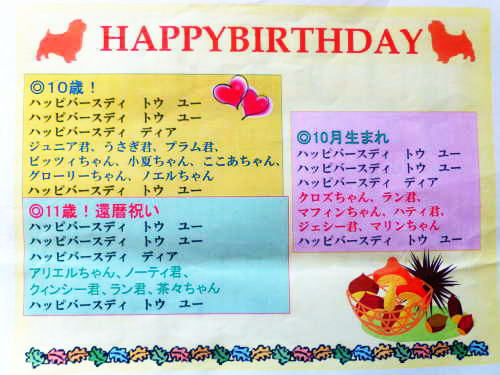 HAPPYBIRTHDAY
◎10歳！
ハッピバースディ　トウ　ユー
ハッピバースディ　トウ　ユー
ハッピバースディ　ディア
ジュニア君、うさぎ君、プラム君、
ピッツィちゃん、小夏ちゃん、ここあちゃん、
グローリーちゃん、ノエルちゃん
ハッピバースディ　トウ　ユー
◎11歳！還暦祝い
ハッピバースディ　トウ　ユー
ハッピバースディ　トウ　ユー
ハッピバースディ　ディア
アリエルちゃん、ノーティ君、
クィンシー君、ラン君、茶々ちゃん
ハッピバースディ　トウ　ユー
◎10月生まれ
ハッピバースディ　トウ　ユー
ハッピバースディ　トウ　ユー
ハッピバースディ　ディア
クロズちゃん、ラン君、
マフィンちゃん、ハティ君、
ジェシー君、マリンちゃん
ハッピバースディ　トウ　ユー